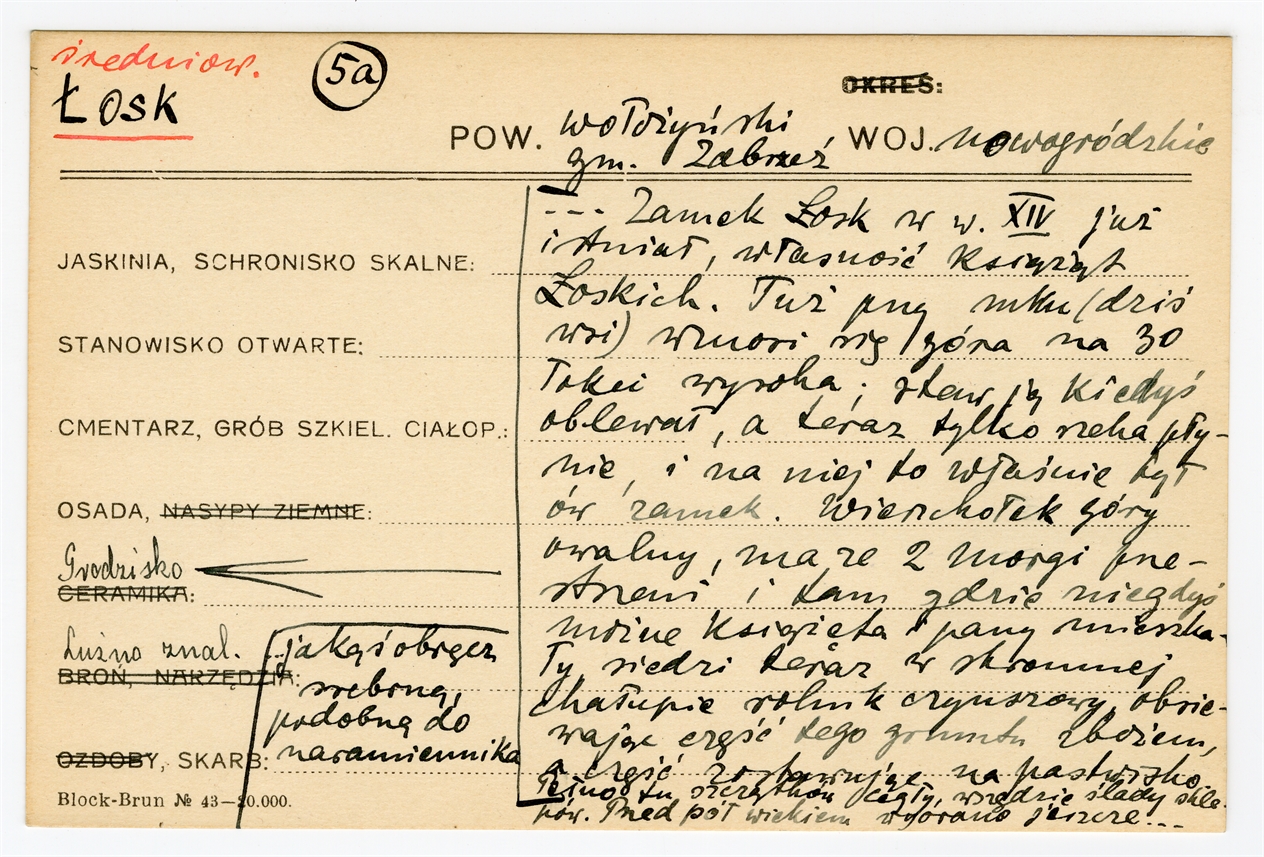 średniow.
Łosk
5a
OKRES:
POW. wołożyński
gm. Zabrzeź
WOJ. nowogródzkie
JASKINIA, SCHRONISKO SKALNE:
STANOWISKO OTWARTE:
CMENTARZ, GRÓB SZKIEL. CIAŁOP.:
OSADA, NASYPY ZIEMNE:
Grodzisko
CERAMIKA:
Luźno znal.
BROŃ, NARZĘDZIA:
OZDOBY, SKARB:
Block-Brun № 43—20.000.
--- Zamek Łosk w w. XIV już
istniał, własność Książąt
Łoskich. Tuż przy mku (dziś
wsi) wznosi się góra na 30
łokci wysoka; staw ją kiedyś
oblewał, a teraz tylko rzeka pły-
nie, i na niej to właśnie był
ów zamek. Wierzchołek góry
owalny, ma ze 2 morgi prze-
strzeni i tam gdzie niegdyś
można Książęta i pany mieszka-
ły siedzi teraz w skromnej
chałupie rolnik czynszowy, obsie-
wając część tego gruntu zbożem,
a część zostawując na pastwisko.
Pełno tu szczątków cegły, wszędzie ślady skle-
pów. Przed pół wiekiem wyorano jeszcze...
...jakąś obręcz
srebrną,
podobną do
naramiennika